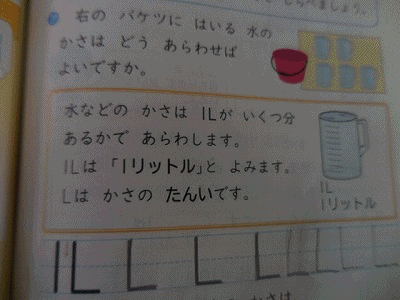 しらべましょう。
右の バケツに はいる 水の
かさは どう あらわせば
よいですか。
水などの かさは 1Lが いくつ分
あるかで あらわします。
1Lは 「1リットル」と よみます。
Lは かさの たんいです。
1L
1リットル
1L L L L L
かさは